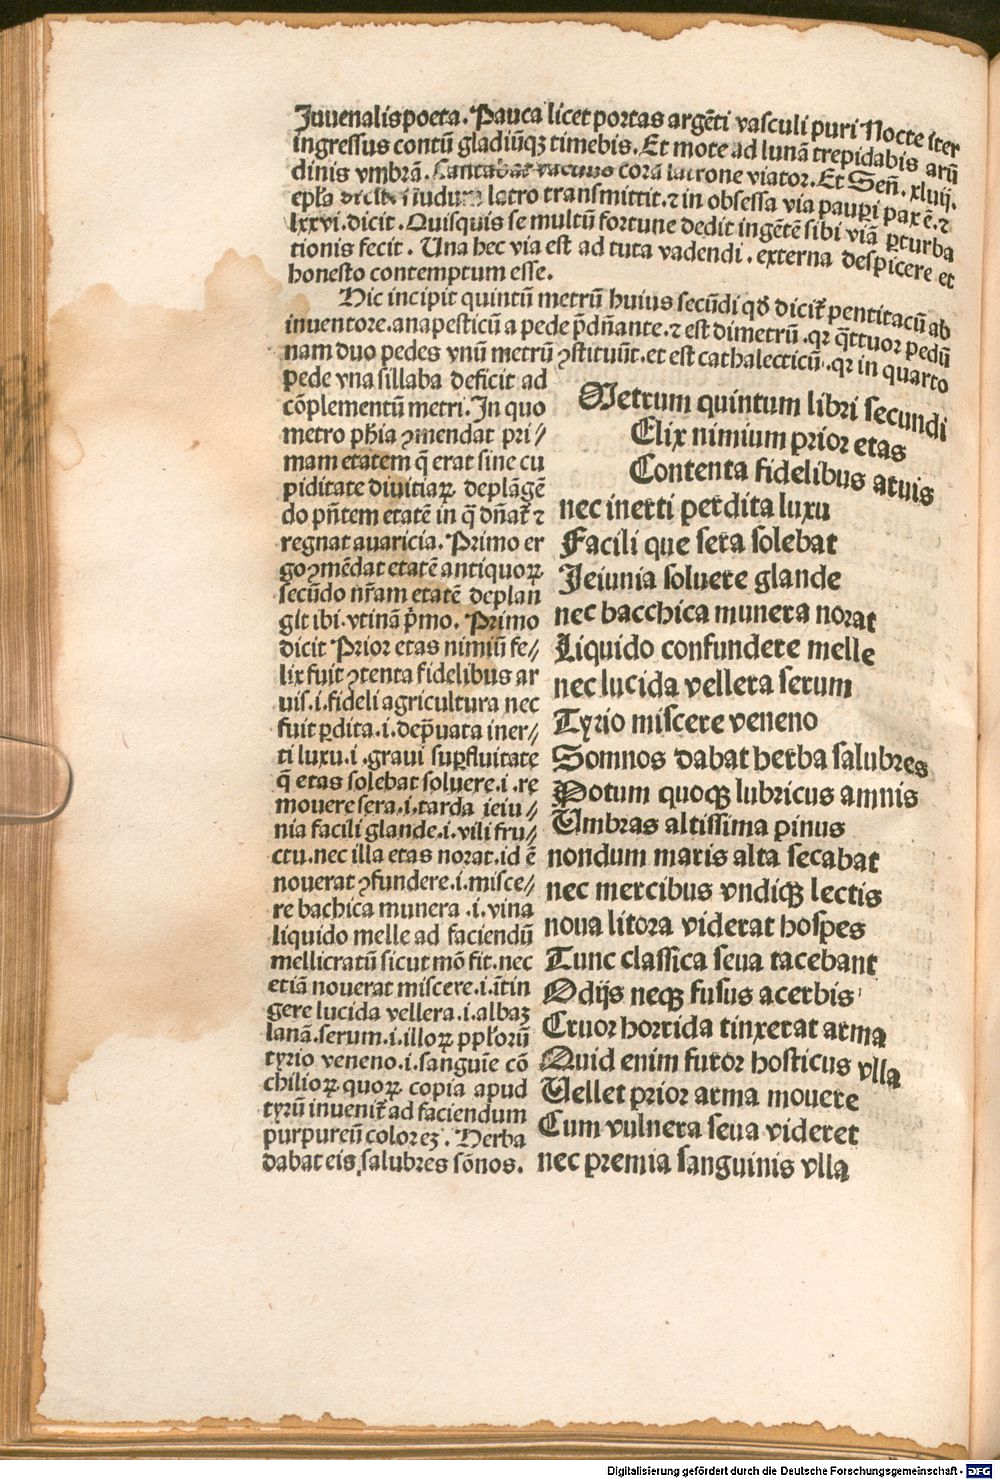 Juuenalis poeta. Pauca licet portas argēti vasculi puri Nocte iter
ingressus contū gladiūqꝫ timebis. Et mote ad lunā trepidabis arū
dinis vmbrā. Cantabat vacuus corā latrone viator. Et Señ. xluij.
epła dicit. nudum latro transmittit. ⁊ in obsessa via paupi pax ē. ⁊
lxxvi. dicit. Quisquis se multū fortune dedit ingētē sibi viā ꝑturba
tionis fecit. Una hec via est ad tuta vadendi. externa despicere et
honesto contemptum esse.
Hic incipit quintū metrū huius secūdi qđ dicit̄ pentitacū ab
inuentore. anapesticū a pede p̄dn̄ante. ⁊ est dimetrū. qꝛ q̄ttuor pedū
nam duo pedes vnū metrū ꝯstituūt. et est cathalecticū. qꝛ in quarto
pede vna sillaba deficit ad
cōplementū metri. In quo
metro pħia ꝯmendat pri//
mam etatem q̄ erat sine cu
piditate diuitiaꝝ deplāgē
do pn̄tem etatē in q̄ dn̄at̄ ⁊
regnat auaricia. Primo er
go ꝯmēdat etatē antiquoꝝ
secūdo nr̄am etatē deplan
git ibi. vtinā p̄mo. Primo
dicit Prior etas nimiū fe//
lix fuit ꝯtenta fidelibus ar
uis. i. fideli agricultura nec
fuit ꝑdita. i. dep̄uata iner//
ti luxu. i. graui suꝑfluitate
q̄ etas solebat soluere. i. re
mouere sera. i. tarda ieiu//
nia facili glande. i. vili fru//
ctu. nec illa etas norat. id ē
nouerat ꝯfundere. i. misce//
re bachica munera. i. vina
liquido melle ad faciendū
mellicratū sicut mō fit. nec
etiā nouerat miscere. i. ītin
gere lucida vellera. i. albaꝫ
lanā. serum. i. illoꝝ ppłorū
tyrio veneno. i. sanguīe cō
chilioꝝ quoꝝ copia apud
tyrū inuenit̄ ad faciendum
purpureū coloreꝫ. Herba
dabat eis salubres sōnos.
Metrum quintum libri secundi
Elix nimium prior etas
Contenta fidelibus aruis
nec inerti perdita luxu
Facili que sera solebat
Jeiunia soluere glande
nec bacchica munera norat
Liquido confundere melle
nec lucida vellera serum
Tyrio miscere veneno
Somnos dabat herba salubres
Potum quoqꝫ lubricus amnis
Umbras altissima pinus
nondum maris alta secabat
nec mercibus vndiqꝫ lectis
noua litora viderat hospes
Tunc classica seua tacebant
Odijs neqꝫ fusus acerbis
Cruor horrida tinxerat arma
Quid enim furor hosticus vlla
Uellet prior arma mouere
Cum vulnera seua videret
nec premia sanguinis vlla
Digitalisierung gefördert durch die Deutsche Forschungsgemeinschaft - DFG